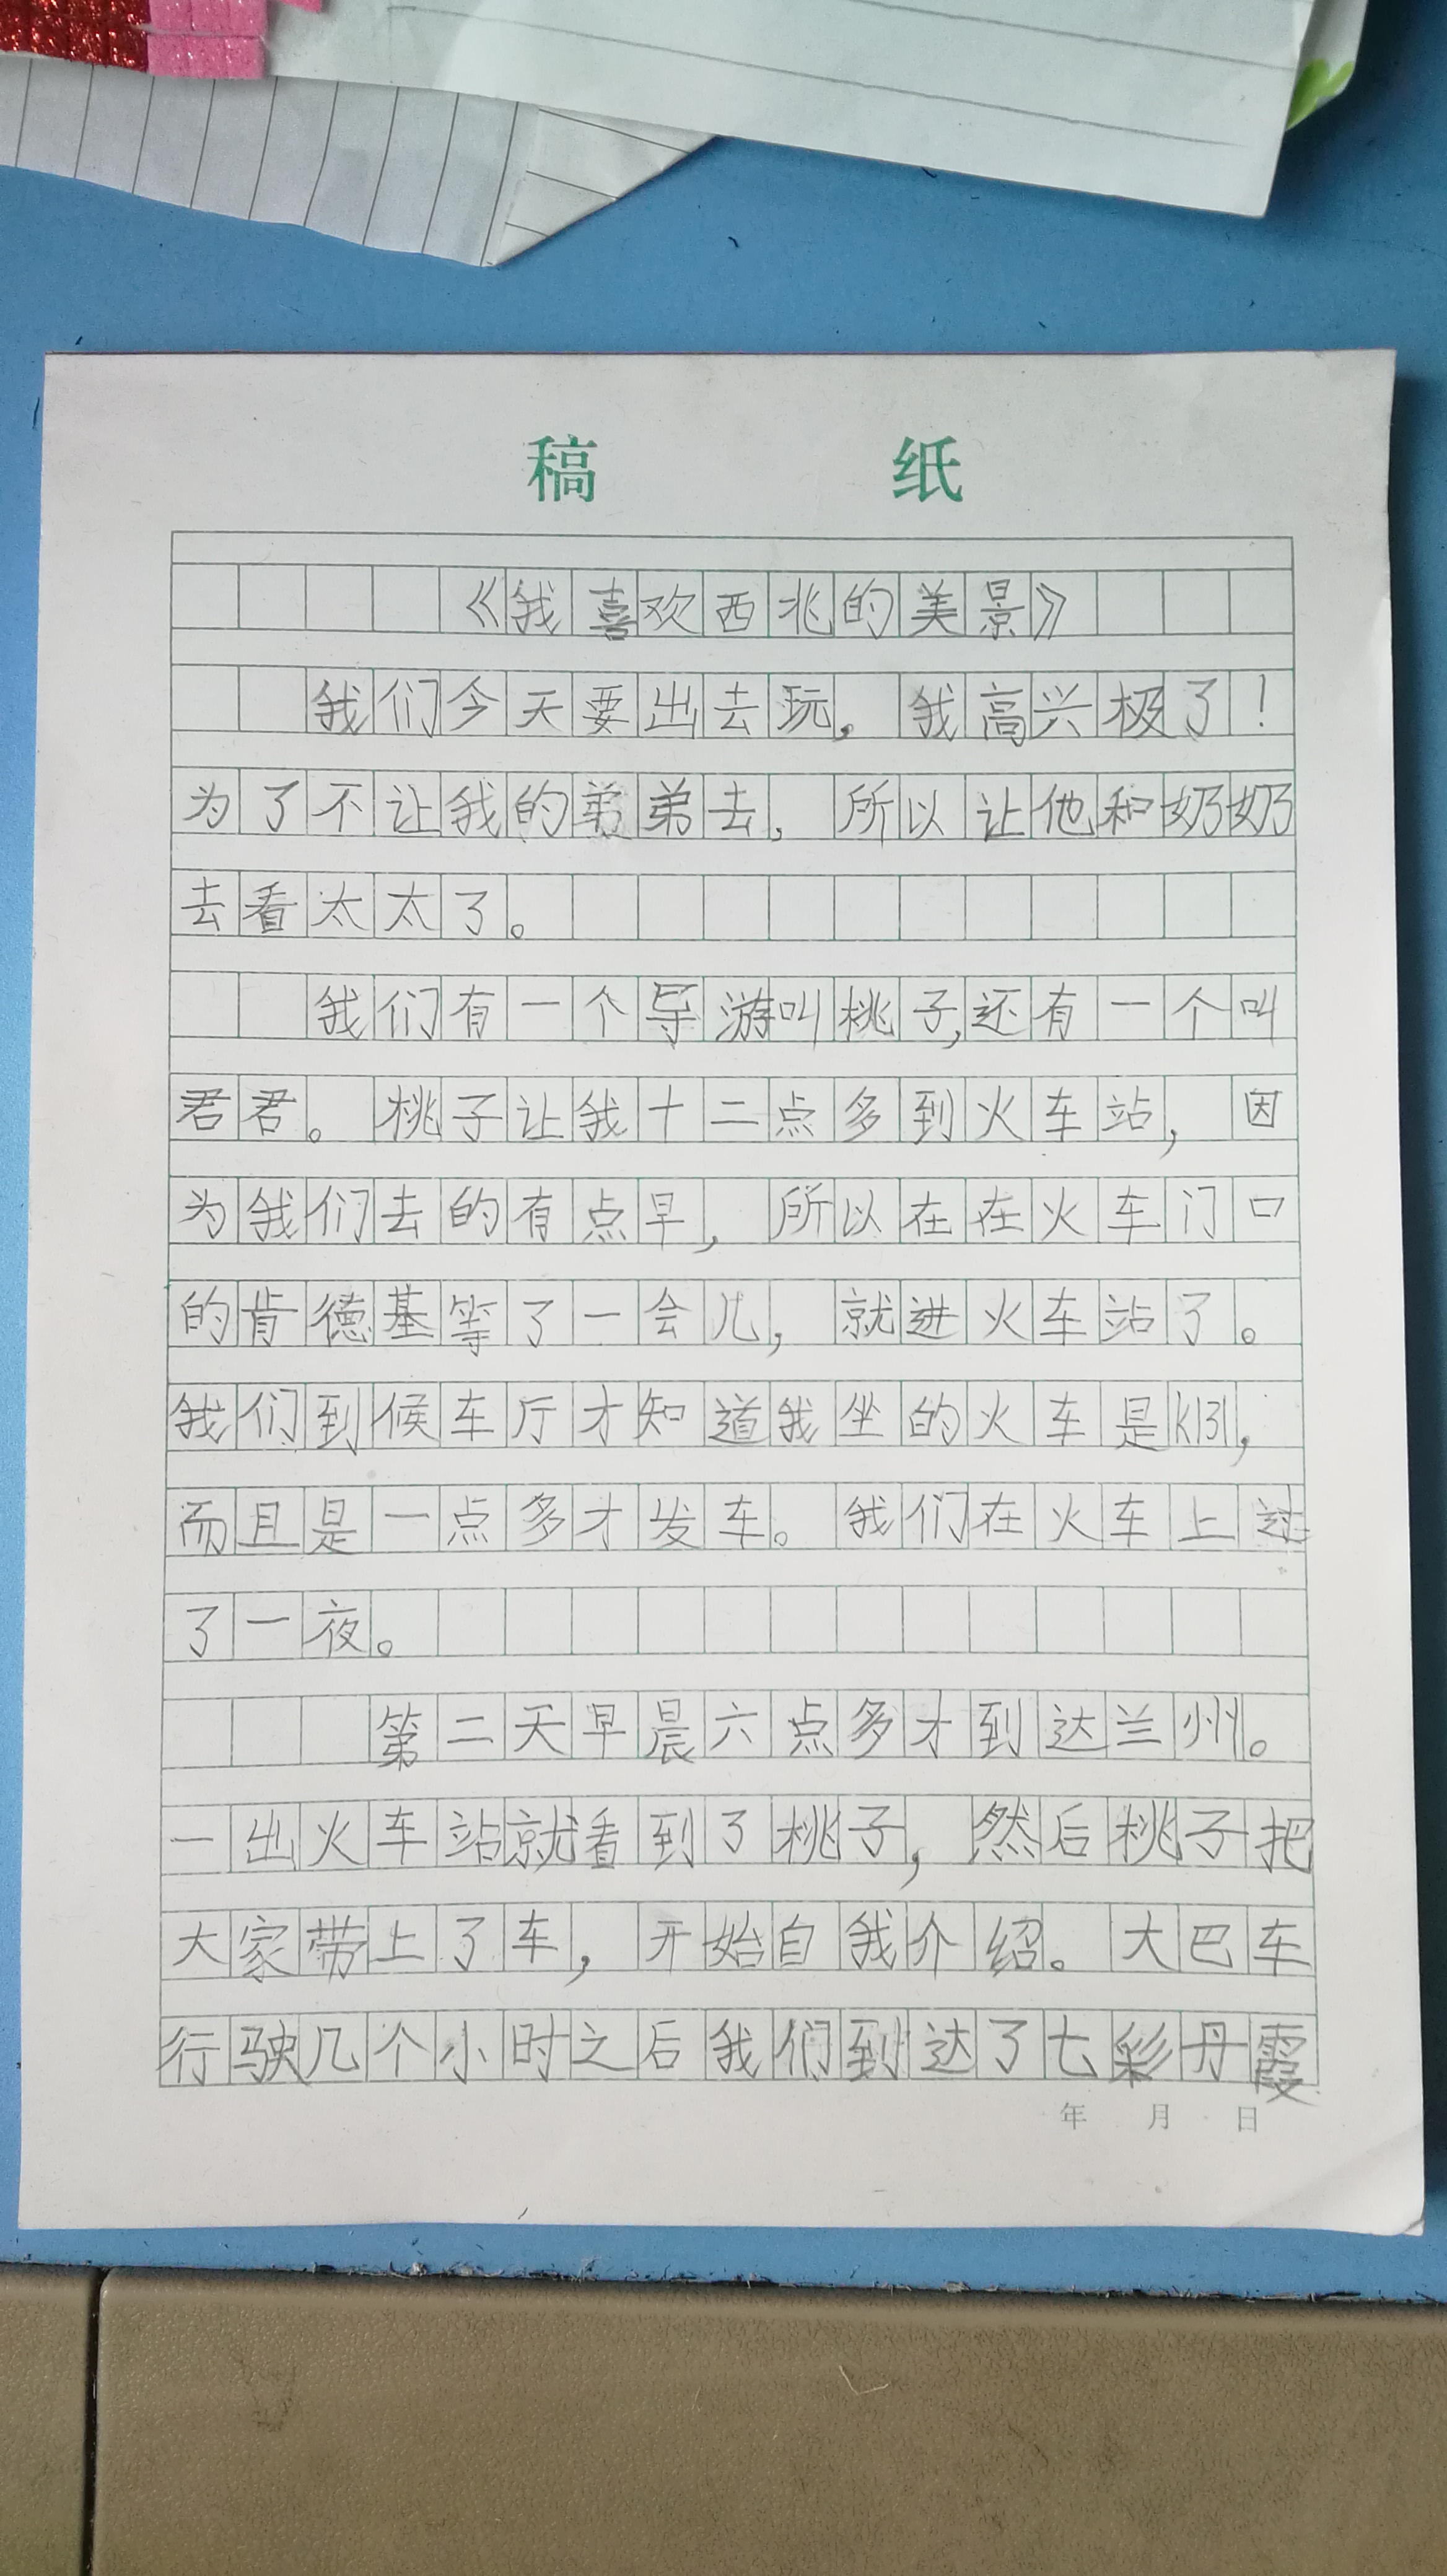 稿 纸
《我喜欢西北的美景》
我们今天要出去玩，我高兴极了！
为了不让我的弟弟去，所以让他和奶奶
去看太太了。
我们有一个导游叫桃子，还有一个叫
君君。桃子让我十二点多到火车站，因
为我们去的有点早，所以在在火车门口
的肯德基等了一会儿，就进火车站了。
我们到候车厅才知道我坐的火车是K131，
而且是一点多才发车。我们在火车上过
了一夜。
第二天早晨六点多才到达兰州。
一出火车站就看到了桃子，然后桃子把
大家带上了车，开始自我介绍。大巴车
行驶几个小时之后我们到达了七彩丹霞
年 月 日